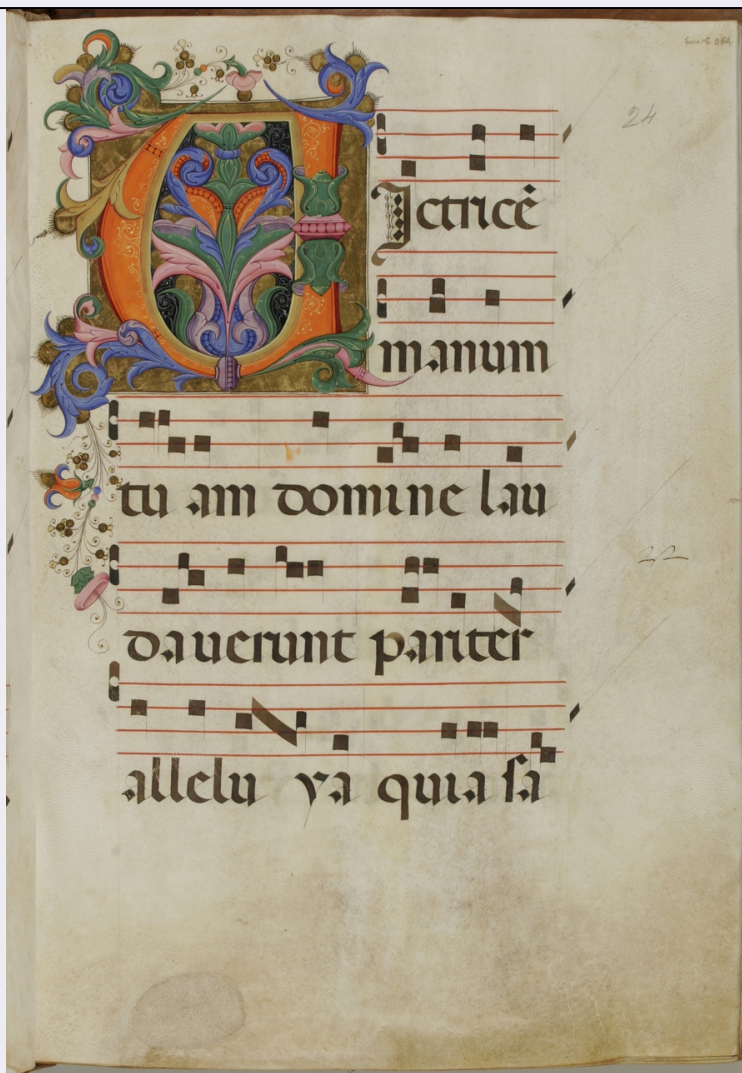 24
VIctricē
manum
tu am domine lau
22
dauerunt pariter
allelu ya quia sa